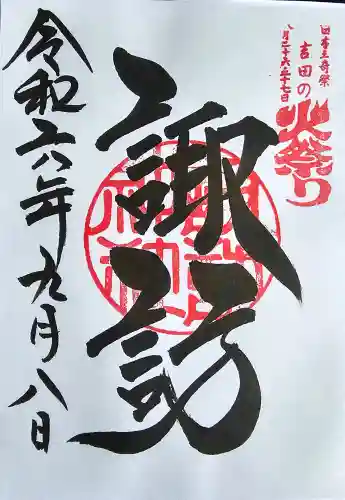 日本三奇祭
吉田の
火祭り
八月二十六・二十七日
諏訪
諏訪神社
令和六年九月八日